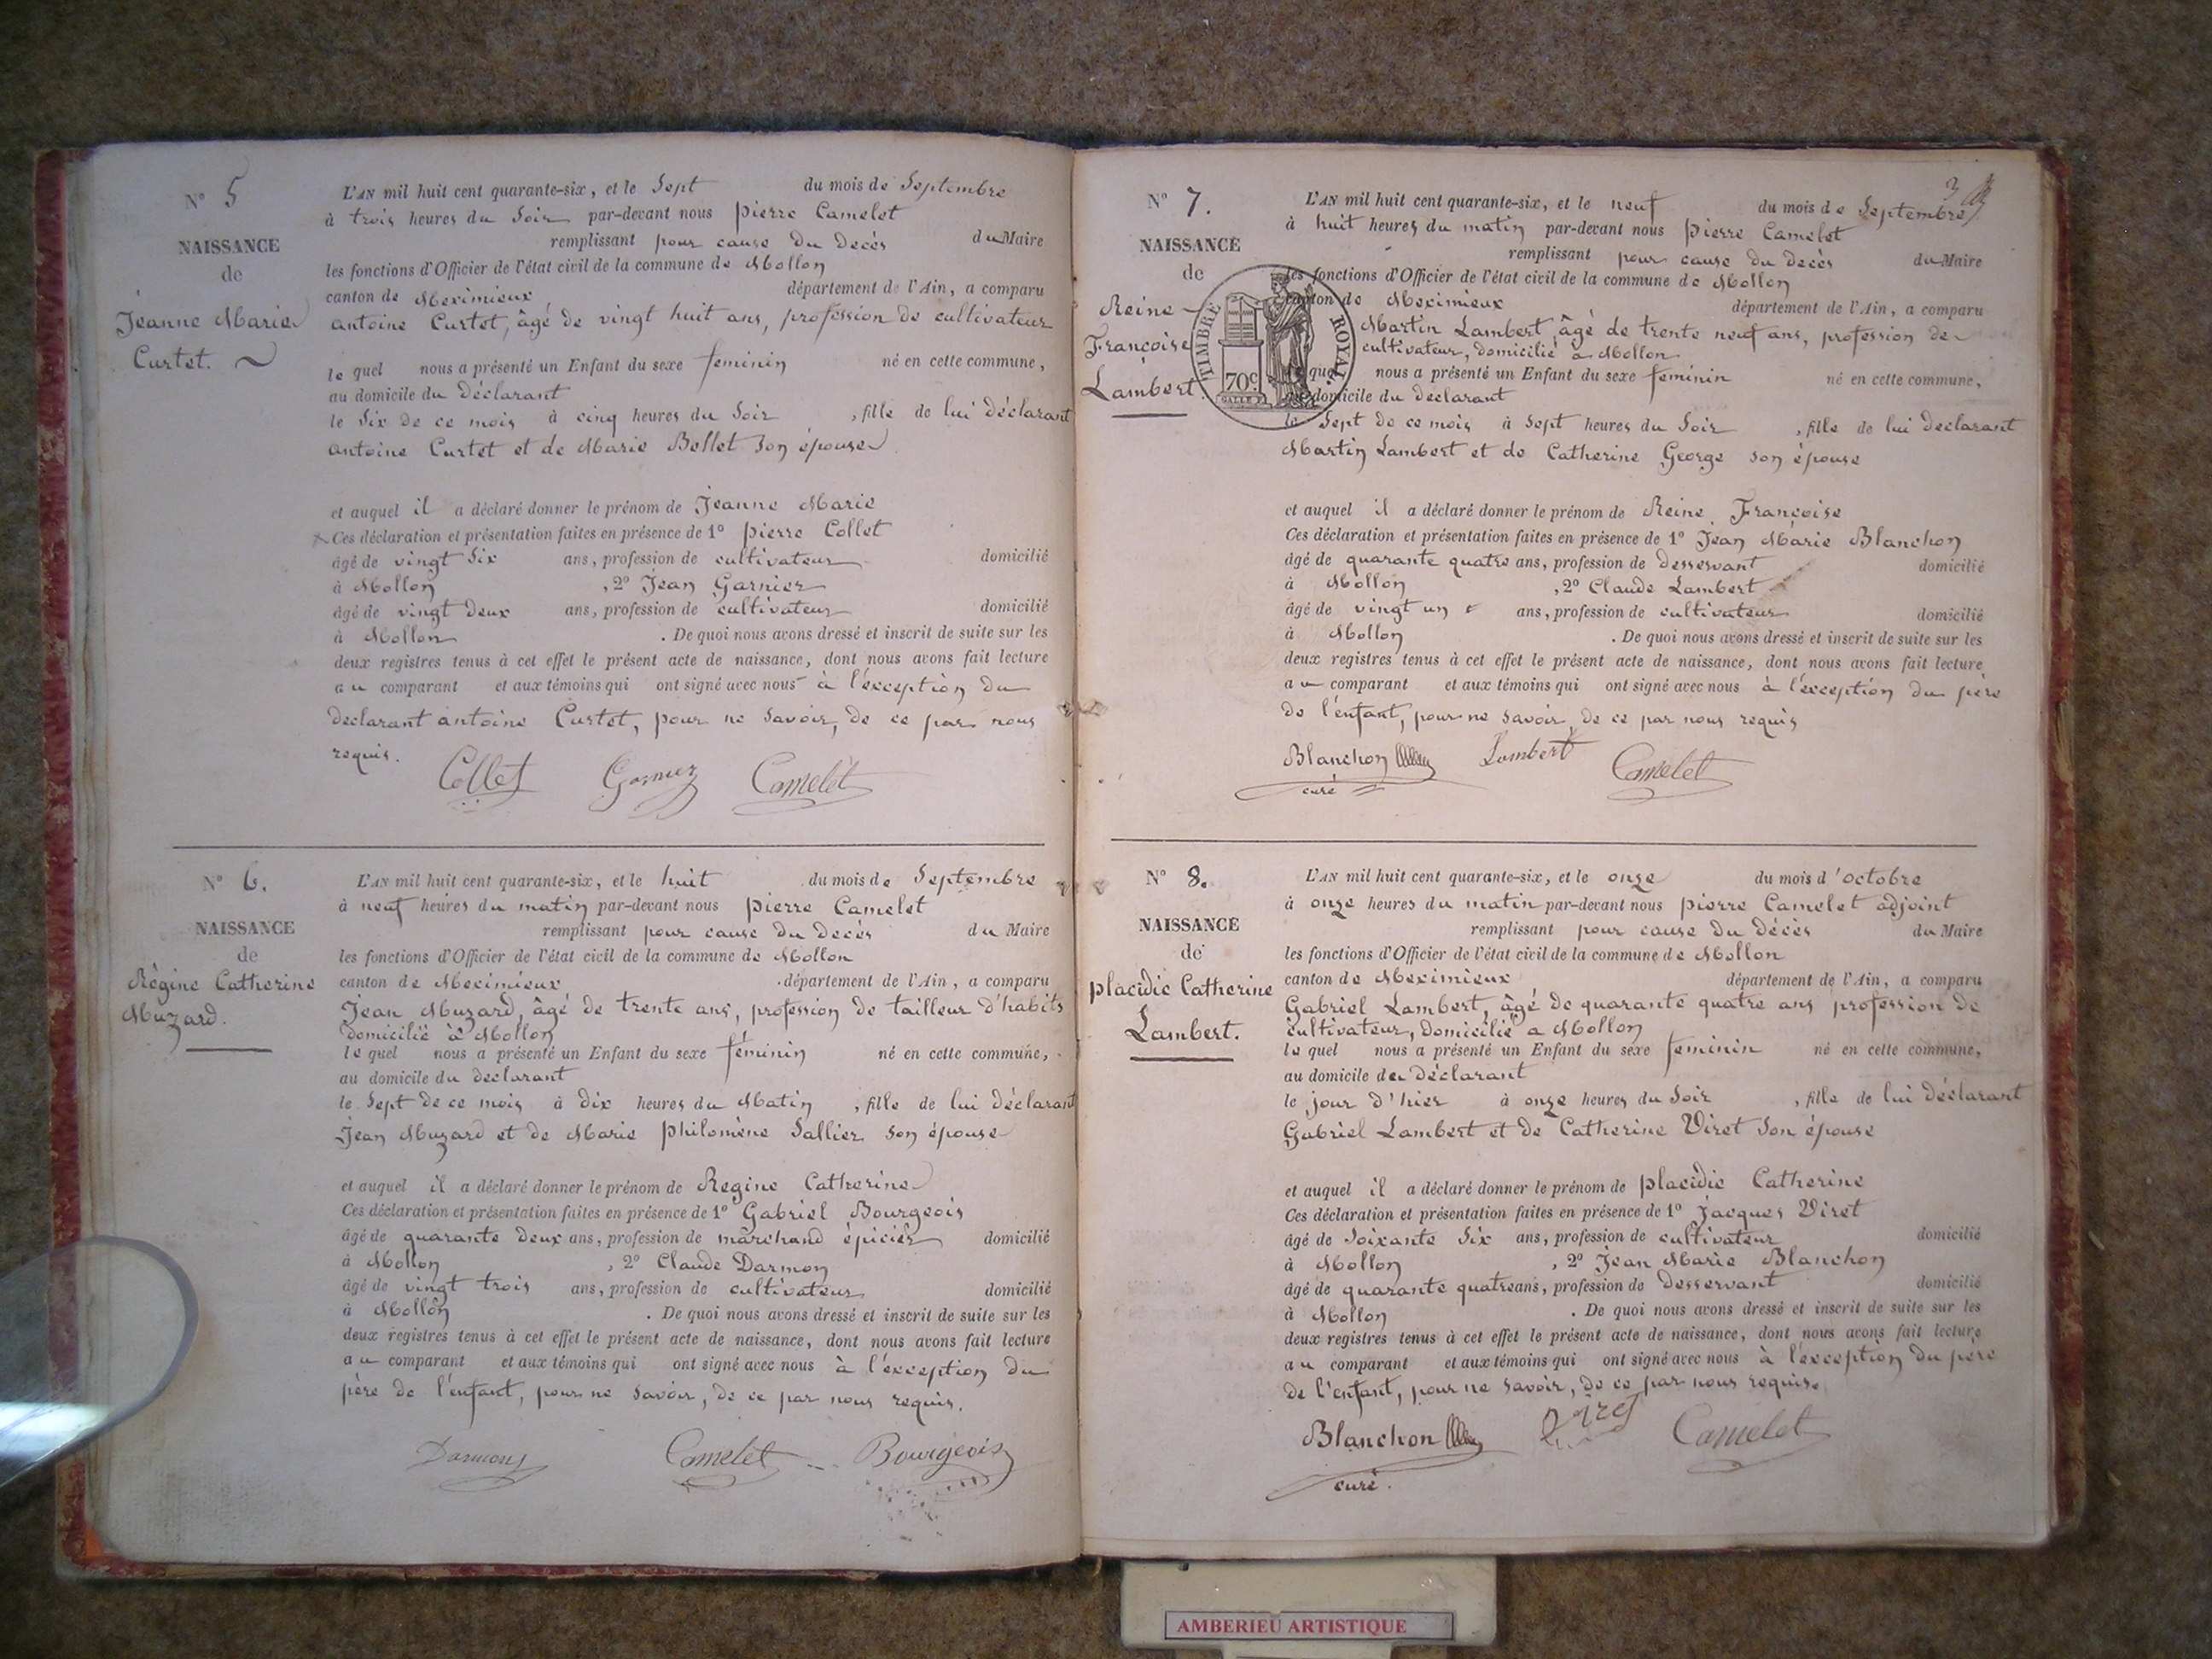 N° 5
NAISSANCE
de
Jeanne Marie
Curtet.
L'AN mil huit cent quarante-six, et le Sept du mois de Septembre
à trois heures du Soir par-devant nous pierre Camelet
remplissant pour cause du Decès du Maire
les fonctions d'Officier de l'état civil de la commune de Mollon
canton de Meximieux département de l'Ain, a comparu
antoine Curtet, âgé de vingt huit ans, profession de cultivateur
le quel nous a présenté un Enfant du sexe feminin né en cette commune,
au domicile du Déclarant
le Six de ce mois à cinq heures du Soir , fille de lui déclarant
antoine Curtet et de Marie Bellet Son épouse
et auquel il a déclaré donner le prénom de Jeanne Marie
Ces déclaration et présentation faites en présence de 1° pierre Collet
âgé de vingt Six ans, profession de cultivateur domicilié
à Mollon , 2° Jean Garnier
âgé de vingt deux ans, profession de cultivateur domicilié
à Mollon . De quoi nous avons dressé et inscrit de suite sur les
deux registres tenus à cet effet le présent acte de naissance, dont nous avons fait lecture
au comparant et aux témoins qui ont signé avec nous à l'exception du
declarant antoine Curtet, pour ne Savoir, de ce par nous
requis.
Collet Garnier Camelet
N° 6.
NAISSANCE
de
Règine Catherine
Muzard.
L'AN mil huit cent quarante-six, et le huit du mois de Septembre
à neuf heures du matin par-devant nous pierre Camelet
remplissant pour cause du Decès du Maire
les fonctions d'Officier de l'état civil de la commune de Mollon
canton de Meximieux département de l'Ain, a comparu
Jean Muzard, âgé de trente ans, profession de tailleur d'habits
domicilié à Mollon
le quel nous a présenté un Enfant du sexe féminin né en cette commune,
au domicile du declarant
le Sept de ce mois à dix heures du Matin , fille de lui déclarant
Jean Muzard et de Marie philomène Sallier son épouse
et auquel il a déclaré donner le prénom de Regine Catherine
Ces déclaration et présentation faites en présence de 1° Gabriel Bourgeois
âgé de quarante deux ans, profession de marchand épicier domicilié
à Mollon , 2° Claude Darmon
âgé de vingt trois ans, profession de cultivateur domicilié
à Mollon . De quoi nous avons dressé et inscrit de suite sur les
deux registres tenus à cet effet le présent acte de naissance, dont nous avons fait lecture
au comparant et aux témoins qui ont signé avec nous à l'exception du
père de l'enfant, pour ne Savoir, de ce par nous requis.
Darmon Camelet Bourgeois
3
N° 7.
NAISSANCE
de
Reine
Françoise
Lambert.
TIMBRE ROYAL
70c
L'AN mil huit cent quarante-six, et le neuf du mois de Septembre
à huit heures du matin par-devant nous pierre Camelet
remplissant pour cause du Decès du Maire
les fonctions d'Officier de l'état civil de la commune de Mollon
canton de Meximieux département de l'Ain, a comparu
Martin Lambert, âgé de trente neuf ans, profession de
cultivateur, domicilié à Mollon
le quel nous a présenté un Enfant du sexe feminin né en cette commune,
au domicile du declarant
le Sept de ce mois à Sept heures du Soir , fille de lui declarant
Martin Lambert et de Catherine George son épouse
et auquel il a déclaré donner le prénom de Reine Françoise
Ces déclaration et présentation faites en présence de 1° Jean Marie Blanchon
âgé de quarante quatre ans, profession de Desservant domicilié
à Mollon , 2° Claude Lambert
âgé de vingt un ans, profession de cultivateur domicilié
à Mollon . De quoi nous avons dressé et inscrit de suite sur les
deux registres tenus à cet effet le présent acte de naissance, dont nous avons fait lecture
au comparant et aux témoins qui ont signé avec nous à l'exception du père
de l'enfant, pour ne savoir, de ce par nous requis
Blanchon Lambert Camelet
curé
N° 8.
NAISSANCE
de
placidie Catherine
Lambert.
L'AN mil huit cent quarante-six, et le onze du mois d'octobre
à onze heures du matin par-devant nous pierre Camelet adjoint
remplissant pour cause du Décès du Maire
les fonctions d'Officier de l'état civil de la commune de Mollon
canton de Meximieux département de l'Ain, a comparu
Gabriel Lambert, âgé de quarante quatre ans profession de
cultivateur, domicilié a Mollon
le quel nous a présenté un Enfant du sexe feminin né en cette commune,
au domicile du Déclarant
le jour d'hier à onze heures du Soir , fille de lui déclarant
Gabriel Lambert et de Catherine Viret Son épouse
et auquel il a déclaré donner le prénom de placidie Catherine
Ces déclaration et présentation faites en présence de 1° Jacques Viret
âgé de Soixante Six ans, profession de cultivateur domicilié
à Mollon , 2° Jean Marie Blanchon
âgé de quarante quatre ans, profession de Desservant domicilié
à Mollon . De quoi nous avons dressé et inscrit de suite sur les
deux registres tenus à cet effet le présent acte de naissance, dont nous avons fait lecture
au comparant et aux témoins qui ont signé avec nous à l'exception du père
de l'enfant, pour ne savoir, de ce par nous requis.
Blanchon Viret Camelet
curé.
AMBERIEU ARTISTIQUE